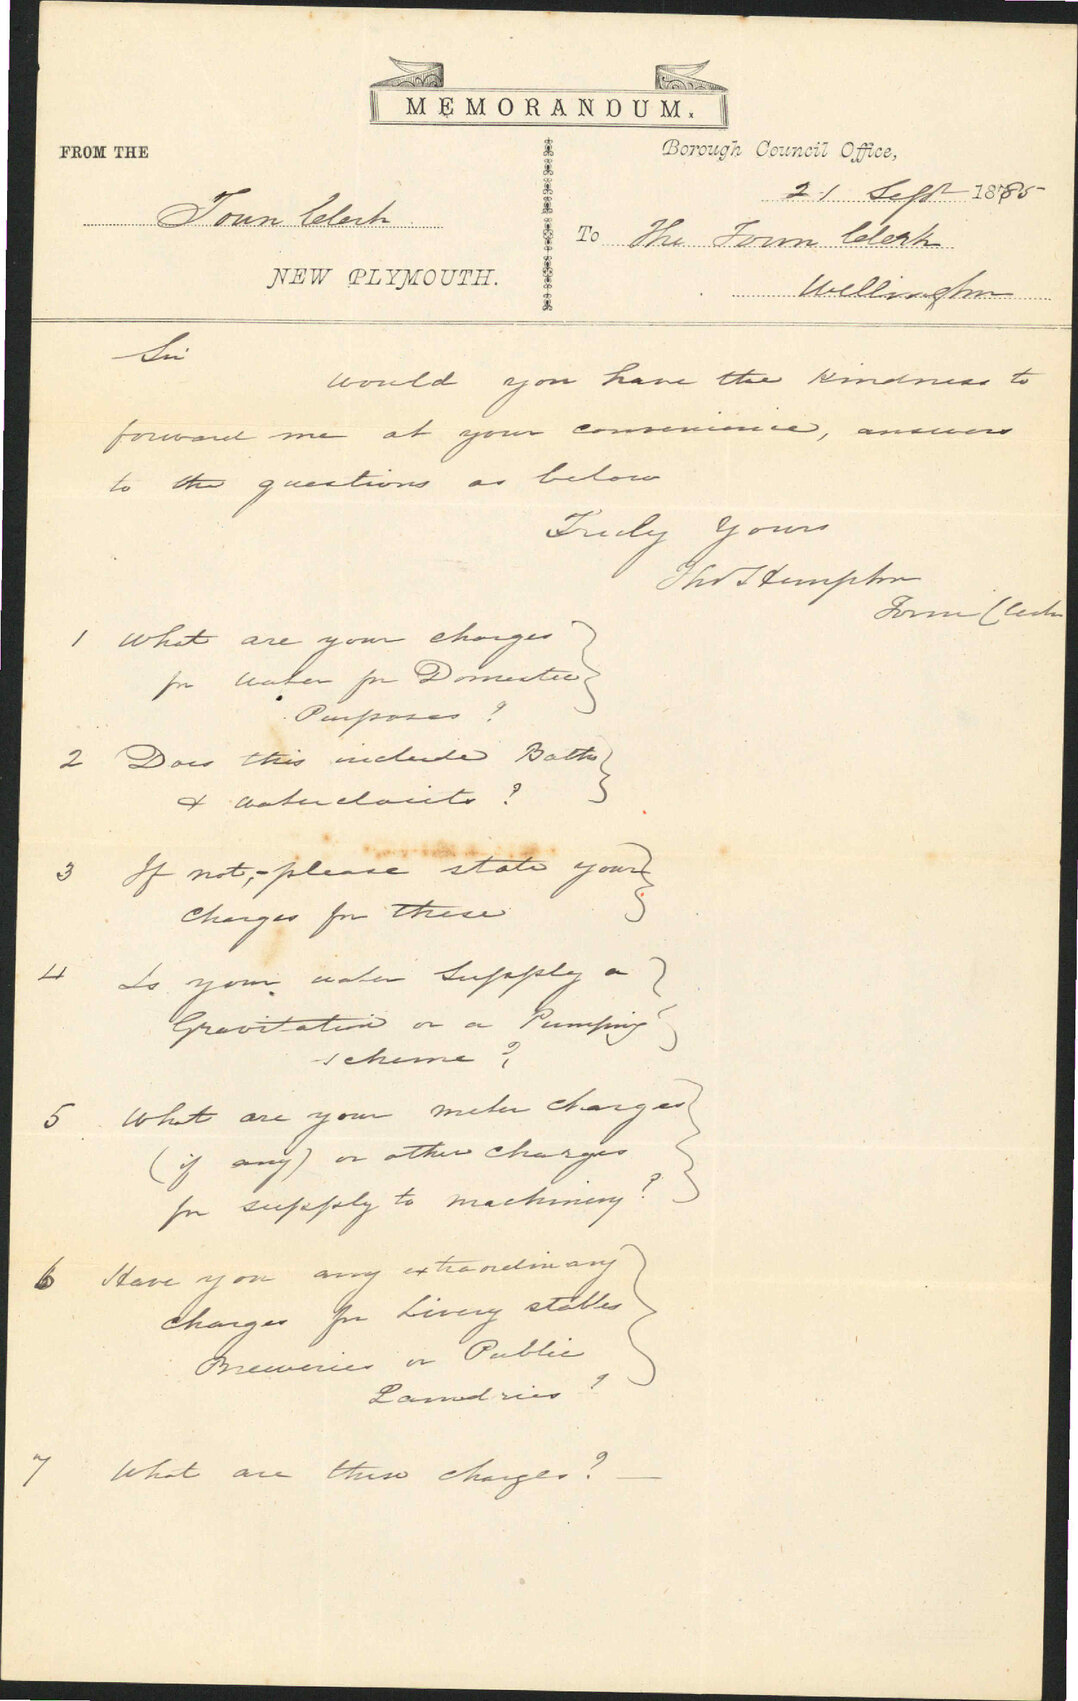 MEMORANDUM.
FROM THE
Borough Council Office,
21 Sept 1885
Town Clerk
To The Town Clerk
NEW PLYMOUTH.
Wellington
Sir
Would you have the kindness to
forward me at your convenience, answers
to the questions as below
Truly Yours
Hempton
Town Clerk
1 What are your charges
for water for Domestic
Purposes ?
2 Does this include Baths
& waterclosets ?
3 If not,- please state your
charges for these
4 Is your water supply a
Gravitation or a Pumping
scheme ?
5 What are your meter charges
(if any) or other charges
for supply to machinery ?
6 Have you any extraordinary
charges for Livery stables
Breweries or Public
Laundries ?
7 What are these charges ? —